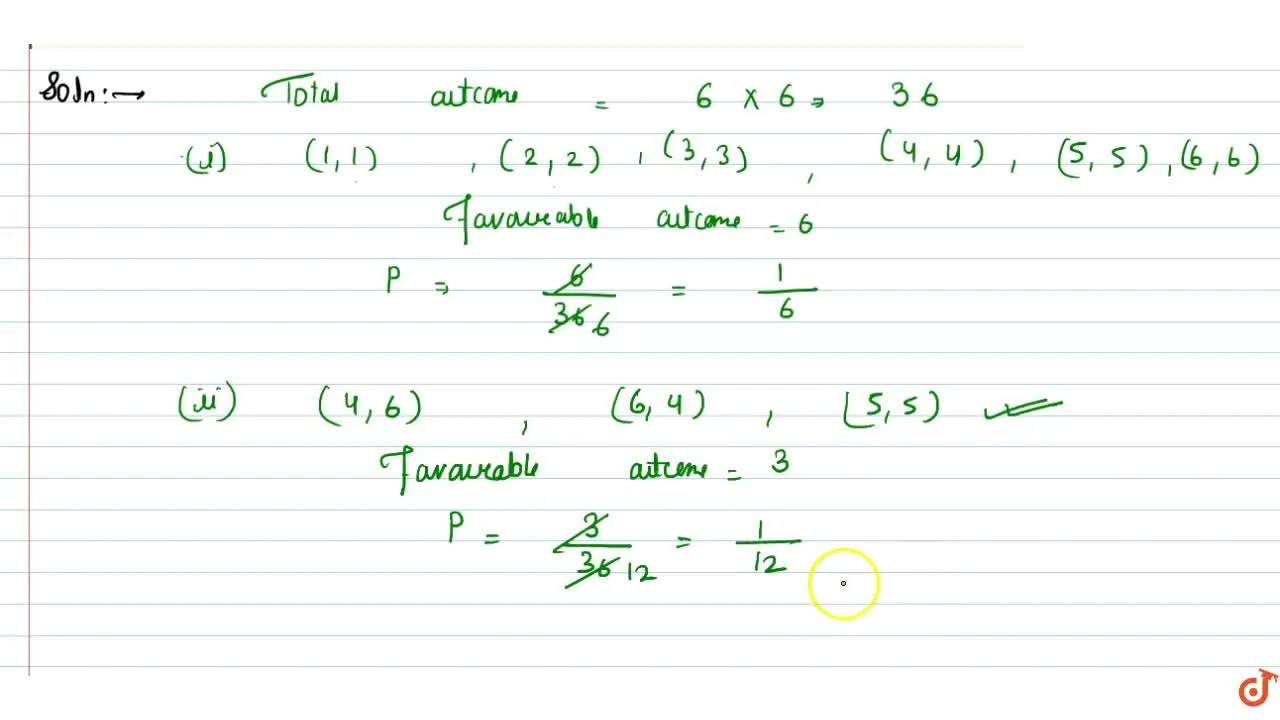 Soln:→ Total outcome = 6 × 6 ⇒ 36
(i) (1,1) , (2,2) , (3,3) , (4,4) , (5,5) , (6,6)
Favaureable outcome = 6
P ⇒ 6/36 6 = 1/6
(ii) (4,6) , (6,4) , (5,5)
Favaureable outcome = 3
P = 3/36 12 = 1/12